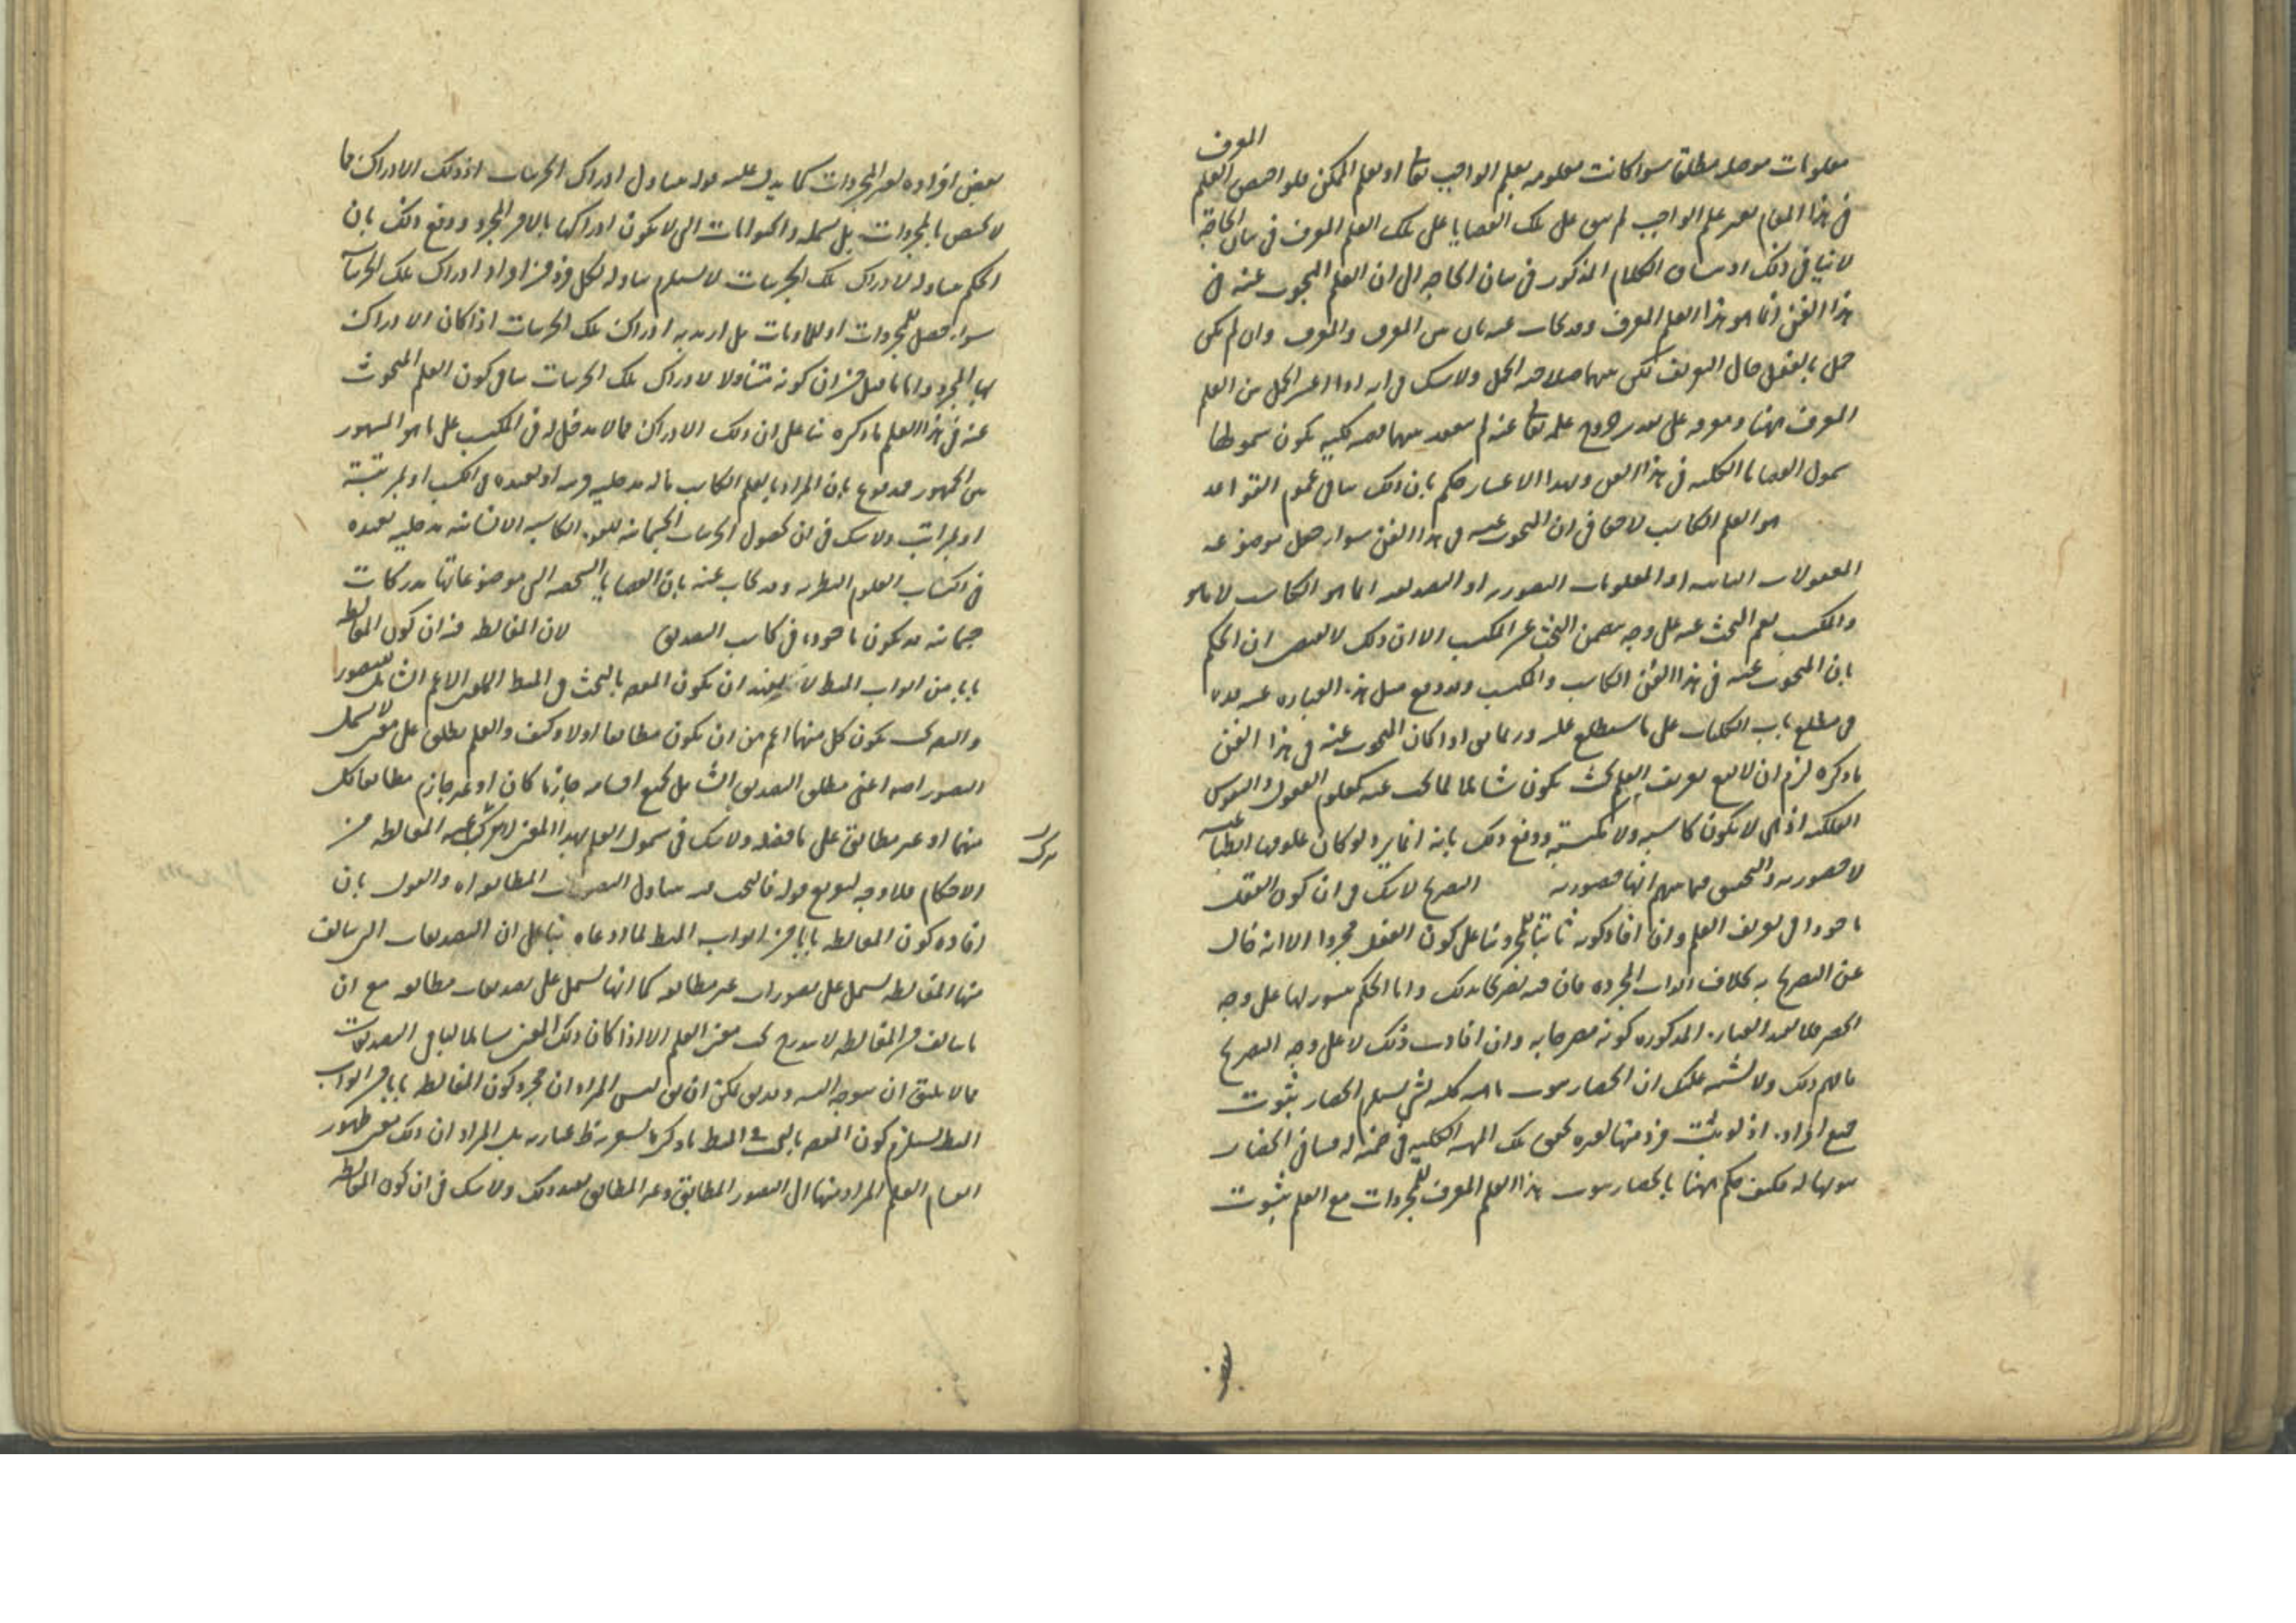 المعرف
معلومات موصله مطلقا سواء كانت معلومه بعلم الواجب تعا او بعلم الممكن فلو اختص العلم
فى هذا المقام بغير علم الواجب لم يبق على تلك القضايا على تلك العلم المعرف فى بيان الحاجة
لا ينافى ذلك اذ سياق الكلام المذكور فى بيان الحاجه الى ان العلم المبحوث عنه فى
هذا الفن انما هو هذا العلم المعرف وقد يجاب عنه بان بين المعرف والمعرف وان لم يكن
حمل بالفعل حال التعريف لكن بينهما صلاحيه الحمل ولا شك فى انه اذا اعتبر الحمل بين العلم
المعرف ههنا ومعرفه على تقدير خروج علمه تعا عنه لم ينعقد بينهما قضيه كليه يكون شمولها
شمول القضايا الكليه فى هذا الفن وبهذا الاعتبار حكم بان ذلك ينافى عموم القواعد
هو العلم الكاسب لا خفا فى ان المبحوث عنه فى هذا الفن سواء جعل موضوعه
المعقولات الثانيه او المعلومات التصوريه او التصديقيه انما هو الكاسب لا ما هو
والمكتسب نعم البحث عنه على وجه يتضمن البحث عن المكتسب الا ان ذلك لا يقتضى ان الحكم
بان المبحوث عنه فى هذا الفن الكاسب والمكتسب وقد وقع مثل هذه العباره عنه
فى مطلع باب الكليات على ما ستطلع عليه وربما يق اذا كان المبحوث عنه فى هذا الفن
ما ذكره لزم ان لا يقع تعريف العلم بحيث يكون شاملا لما يبحث عنه كعلوم العقول والنفوس
الفلكيه اذ هى لا يكون كاسبه ولا مكتسبه ودفع ذلك بانه انما يرد لو كان علومها انطباعيه
لا حضوريه والتحقيق فيما بينهم انها حضوريه التصريح لا شك فى ان كون العقل
ماخوذا فى تعريف العلم وان افاد كونه ثابتا للمجرد بناء على كون العقل مجردا الا انه خال
عن التصريح به بخلاف الذوات المجرده فان فيه تصريحا بذلك واما الحكم بثبوتها على وجه
الحصر فلا تفيد العباره المذكوره كونه مصرحا به وان افادت ذلك لا على وجه التصريح
فافهم ذلك ولا يشتبه عليك ان انحصار ثبوت ماهيه كليه لشئ يستلزم انحصار ثبوت
جميع افراده اذ لو ثبت فرد منها لغيره لتحقق تلك المهيه الكليه فى ضمنه له فينافى انحصار
ثبوتها له فكيف حكم ههنا بانحصار ثبوت هذا العلم المعرف للمجردات مع العلم بثبوت
بعض افراده لغير المجردات كما يدل عليه قوله يتناول ادراك الجزئيات اذ ذلك الادراك مما
لا يختص بالمجردات بل يشمله والحيوانات التى لا يكون ادراكها بالامر المجرد ودفع ذلك بان
الحكم بتناوله لادراك تلك الجزئيات لا يستلزم تناوله لكل فرد من افراد ادراك تلك الجزئيات
سواء حصل للمجردات او للماديات بل اريد به ادراك تلك الجزئيات اذا كان الادراك
بها المجرد واما ما قيل من ان كونه متناولا لادراك تلك الجزئيات ينافى كون العلم المبحوث
عنه فى هذا العلم ما ذكره بناء على ان ذلك الادراك مما لا مدخل له فى الكسب على ما هو المشهور
من الجمهور فمدفوع بان المراد بالعلم الكاسب ما له مدخليه قريبه او بعيده فى الكسب او بمرتبة
او بمراتب ولا شك فى ان لحصول الجزئيات الجسمانيه للقوه الكاسبه الانسانيه مدخليه بعيده
فى اكتساب العلوم النظريه وقد يجاب عنه بان القضايا الشخصيه التى موضوعاتها مدركات
جسمانيه قد يكون ماخوذه فى كاسب التصديق لان المغالطه فيه ان كون المغالطه
بابا من ابواب المنطق لا يفيد ان يكون المقصد بالبحث فى المنطق العلم الاعم الشامل للتصور
والتصديق يكون كل منهما اعم من ان يكون مطابقا اولا وكيف والعلم يطلق على معنى لا يشمل
التصور اصه اعنى مطلق التصديق الشامل لجميع اقسامه جازما كان او غير جازم مطابقا كل
منهما او غير مطابق على ما فصل ولا شك فى شمول العلم بهذا المعنى لما يتركب عنه المغالطه من
يترك
الاحكام فلا وجه لتفريع قوله فالبحث قد يتناول التصورات المطابقه اه والقول بان
افاده كون المغالطه بابا من ابواب المنطق لما ادعاه بناء على ان التصديقات التى يتالف
منها المغالطه يشمل على تصورات غير مطابقه كما انها يشمل على تصديقات مطابقه مع ان
ما يتالف منه المغالطه لا يندرج تحت معنى العلم الا اذا كان ذلك المعنى شاملا لباقى التصديقات
مما لا يليق ان يتوجه اليه وقد يق لكن ان يق ليس المراد ان مجرد كون المغالطه بابا من ابواب
المنطق يستلزم كون المقصد بالبحث فى المنطق ما ذكر كما يشعر به ظ عبارته بل المراد ان ذلك يعنى ظهور
انقسام العلم المراد منها الى التصور المطابق وغير المطابق يفيد ذلك ولا شك فى ان كون المغالطه